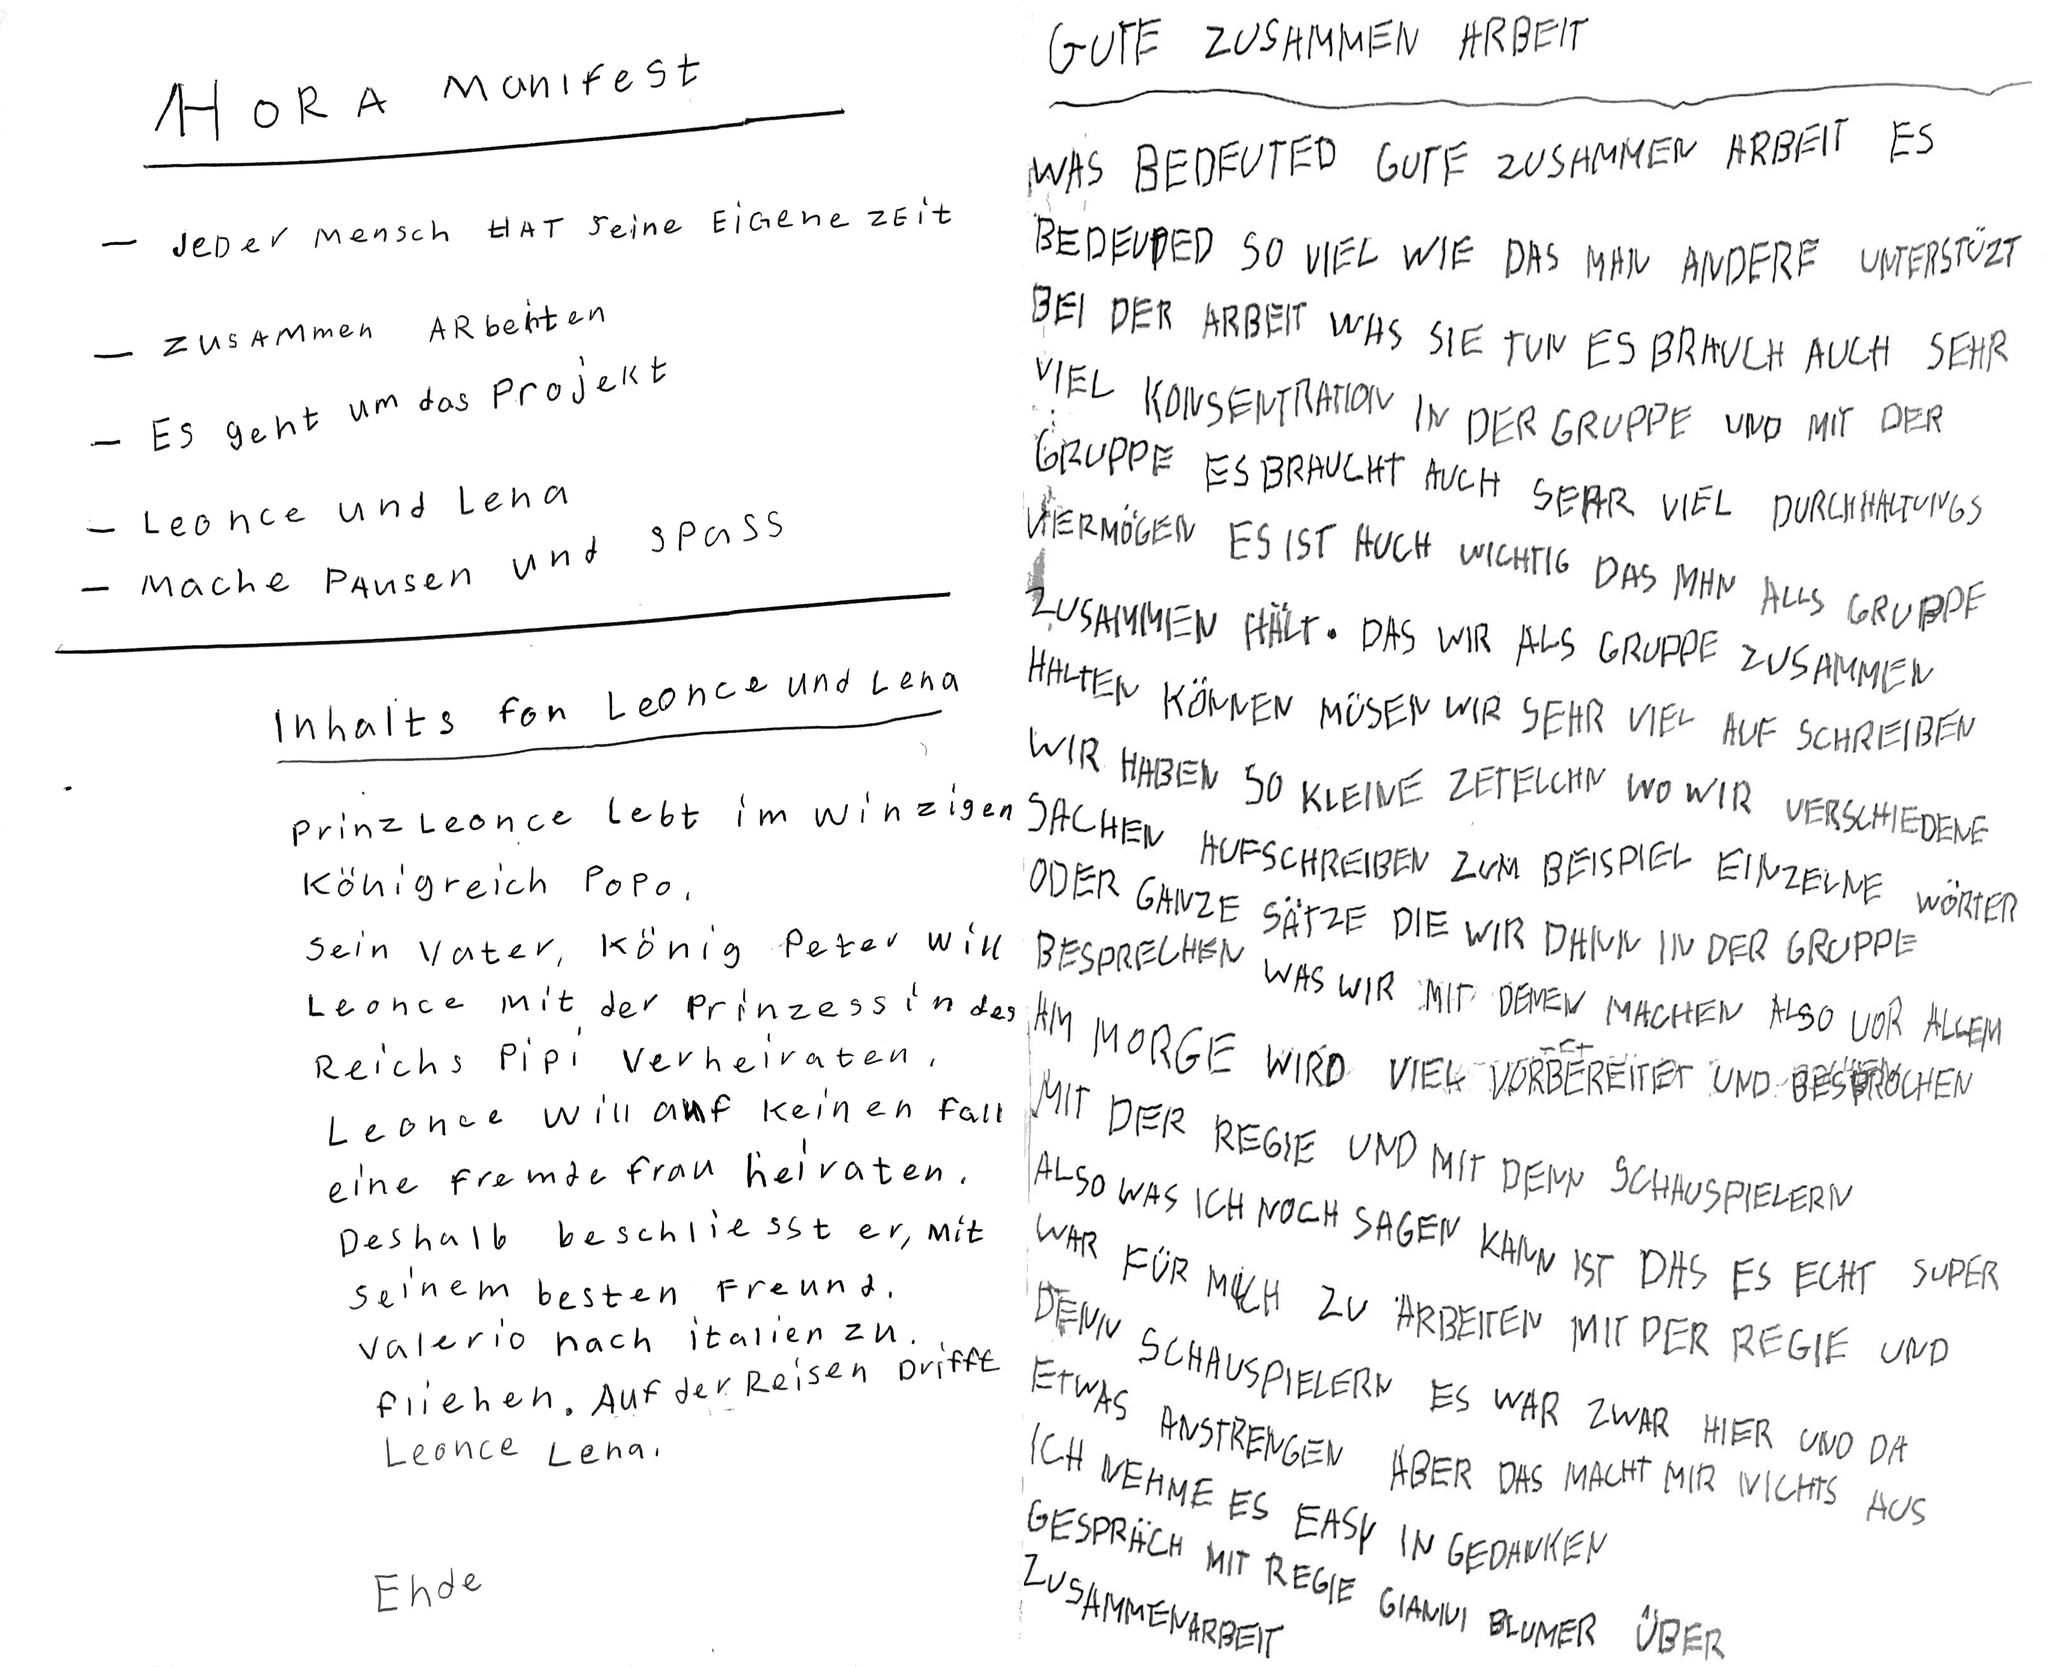 HORA Manifest
— Jeder Mensch HAT seine Eigene Zeit
— Zusammen Arbeiten
— Es geht um das Projekt
— Leonce und Lena
— Mache Pausen und spass
Inhalts fon Leonce und Lena
Prinz Leonce lebt im winzigen
Königreich Popo.
Sein Vater, König Peter will
Leonce mit der Prinzessin des
Reichs Pipi verheiraten.
Leonce will auf keinen Fall
eine fremde Frau heiraten.
Deshalb beschliesst er, mit
seinem besten Freund.
Valerio nach italien zu.
fliehen. Auf der Reisen Drifft
Leonce Lena.
Ende
GUTE ZUSAMMEN ARBEIT
WAS BEDEUTED GUTE ZUSAMMEN ARBEIT ES
BEDEUDED SO VIEL WIE DAS MAN ANDERE UNTERSTÜZT
BEI DER ARBEIT WAS SIE TUN ES BRAUCH AUCH SEHR
VIEL KONSENTRATION IN DER GRUPPE UND MIT DER
GRUPPE ES BRAUCHT AUCH SEHR VIEL DURCHHALTUNGS
VERMÖGEN ES IST AUCH WICHTIG DAS MAN ALLS GRUPPE
ZUSAMMEN HÄLT. DAS WIR ALS GRUPPE ZUSAMMEN
HALTEN KÖNNEN MÜSEN WIR SEHR VIEL AUF SCHREIBEN
WIR HABEN SO KLEINE ZETELCHN WO WIR VERSCHIEDENE
SACHEN AUFSCHREIBEN ZUM BEISPIEL EINZELNE WÖRTER
ODER GANZE SÄTZE DIE WIR DANN IN DER GRUPPE
BESPRECHEN WAS WIR MIT DENEN MACHEN ALSO VOR ALLEM
AM MORGE WIRD VIEL VORBEREITET UND BESPROCHEN
MIT DER REGIE UND MIT DENN SCHAUSPIELERN
ALSO WAS ICH NOCH SAGEN KANN IST DAS ES ECHT SUPER
WAR FÜR MICH ZU ARBEITEN MIT DER REGIE UND
DENN SCHAUSPIELERN ES WAR ZWAR HIER UND DA
ETWAS ANSTRENGEN ABER DAS MACHT MIR NICHTS AUS
ICH NEHME ES EASY IN GEDANKEN
GESPRÄCH MIT REGIE GIANNI BLUMER ÜBER
ZUSAMMENARBEIT